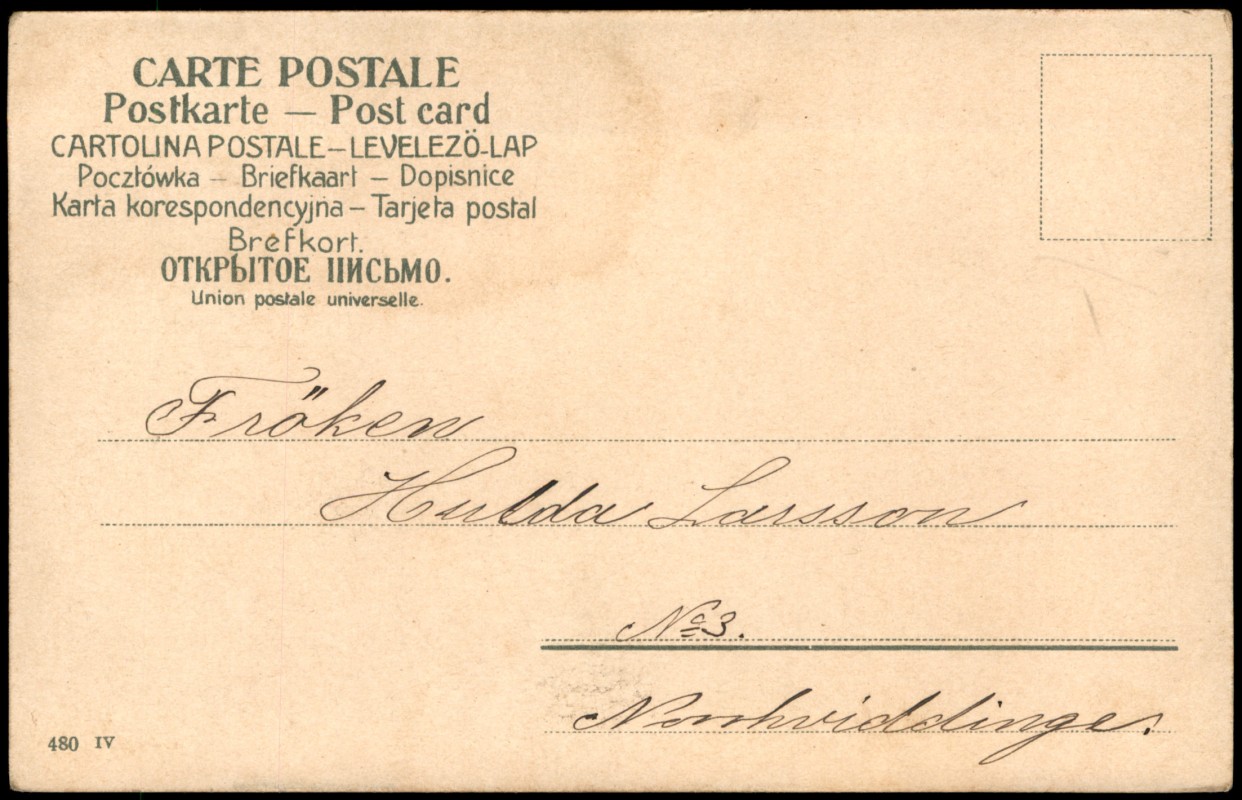 CARTE POSTALE
Postkarte — Post card
CARTOLINA POSTALE – LEVELEZÖ-LAP
Pocztówka – Briefkaart – Dopisnice
Karta korespondencyjna – Tarjeta postal
Brefkort.
ОТКРЫТОЕ ПИСЬМО.
Union postale universelle.
Fröken
Hulda Larsson
No 3.
Norrhviddinge.
480 IV